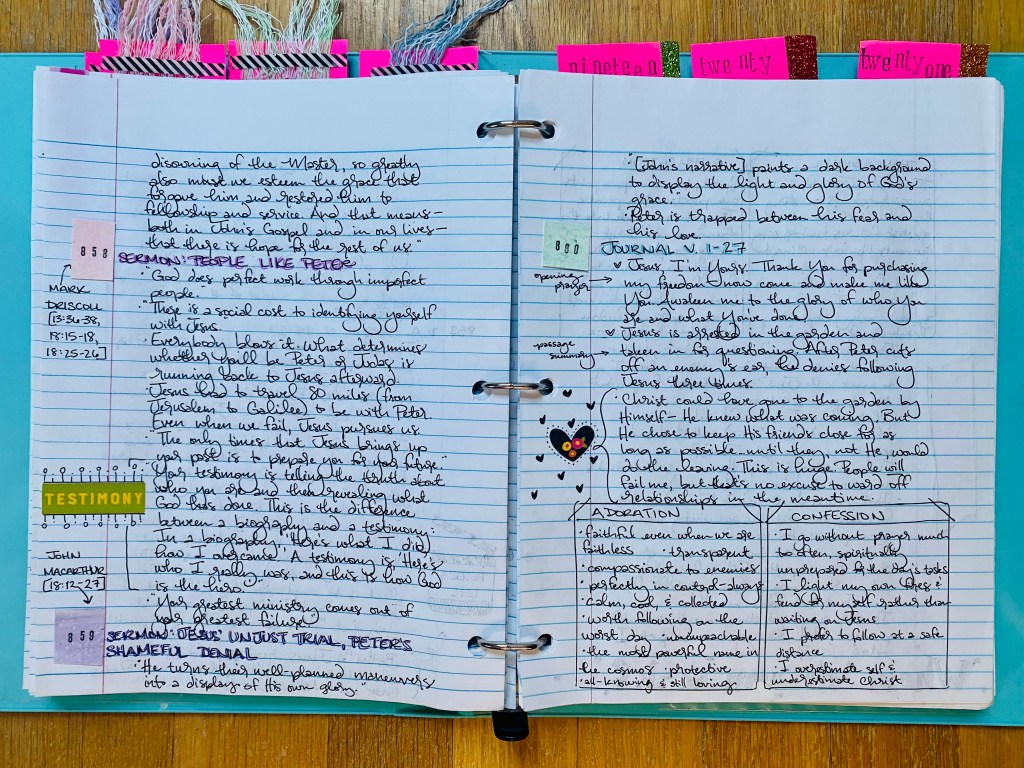 nineteen
twenty
twentyone
disowning of the Master, so greatly
also must we esteem the grace that
forgave him and restored him to
fellowship and service. And that means—
both in John's Gospel and in our lives—
that there is hope for the rest of us."
858
SERMON: PEOPLE LIKE PETER
MARK
DRISCOLL
[13:36-38,
18:15-18,
18:25-26]
"God does perfect work through imperfect
people.
"There is a social cost to identifying yourself
with Jesus.
· Everybody blows it. What determines
whether you'll be Peter or Judas is
running back to Jesus afterward.
· Jesus had to travel 80 miles (from
Jerusalem to Galilee) to be with Peter.
Even when we fail, Jesus pursues us.
· "The only times that Jesus brings up
your past is to prepare you for your future."
TESTIMONY
· "Your testimony is telling the truth about
who you are and then revealing what
God has done. This is the difference
between a biography and a testimony:
In a biography, 'Here's what I did,
how I overcame.' A testimony is, 'Here's
who I really was, and this is how God
is the hero.'"
· "Your greatest ministry comes out of
your greatest failure."
JOHN
MACARTHUR
[18:12-27]
859
SERMON: JESUS' UNJUST TRIAL, PETER'S
SHAMEFUL DENIAL
· "He turns their well-planned maneuvers
into a display of His own glory."
· "[John's narrative] paints a dark background
to display the light and glory of God's
grace."
· Peter is trapped between his fear and
his love.
860
JOURNAL V. 1-27
opening
prayer
Jesus, I'm Yours. Thank You for purchasing
my freedom, now come and make me like
You. Awaken me to the glory of who You
are and what You've done.
passage
summary
Jesus is arrested in the garden and
taken in for questioning. After Peter cuts
off an enemy's ear, he denies following
Jesus three times.
· Christ could have gone to the garden by
Himself— He knew what was coming. But
He chose to keep His friends close for as
long as possible until they, not He, would
do the leaving. This is huge. People will
fail me, but that's no excuse to ward off
relationships in the meantime.
ADORATION
· faithful even when we are
faithless · transparent
· compassionate to enemies
· perfectly in control · always
calm, cool, & collected
· worth following on the
worst day · unimpeachable
· the most powerful name in
the cosmos · protective
· all-knowing & still loving
CONFESSION
· I go without prayer much
too often, spiritually
unprepared for the day's tasks
· I light my own fires &
fend for myself rather than
waiting on Jesus
· I prefer to follow at a safe
distance
· I overestimate self &
underestimate Christ